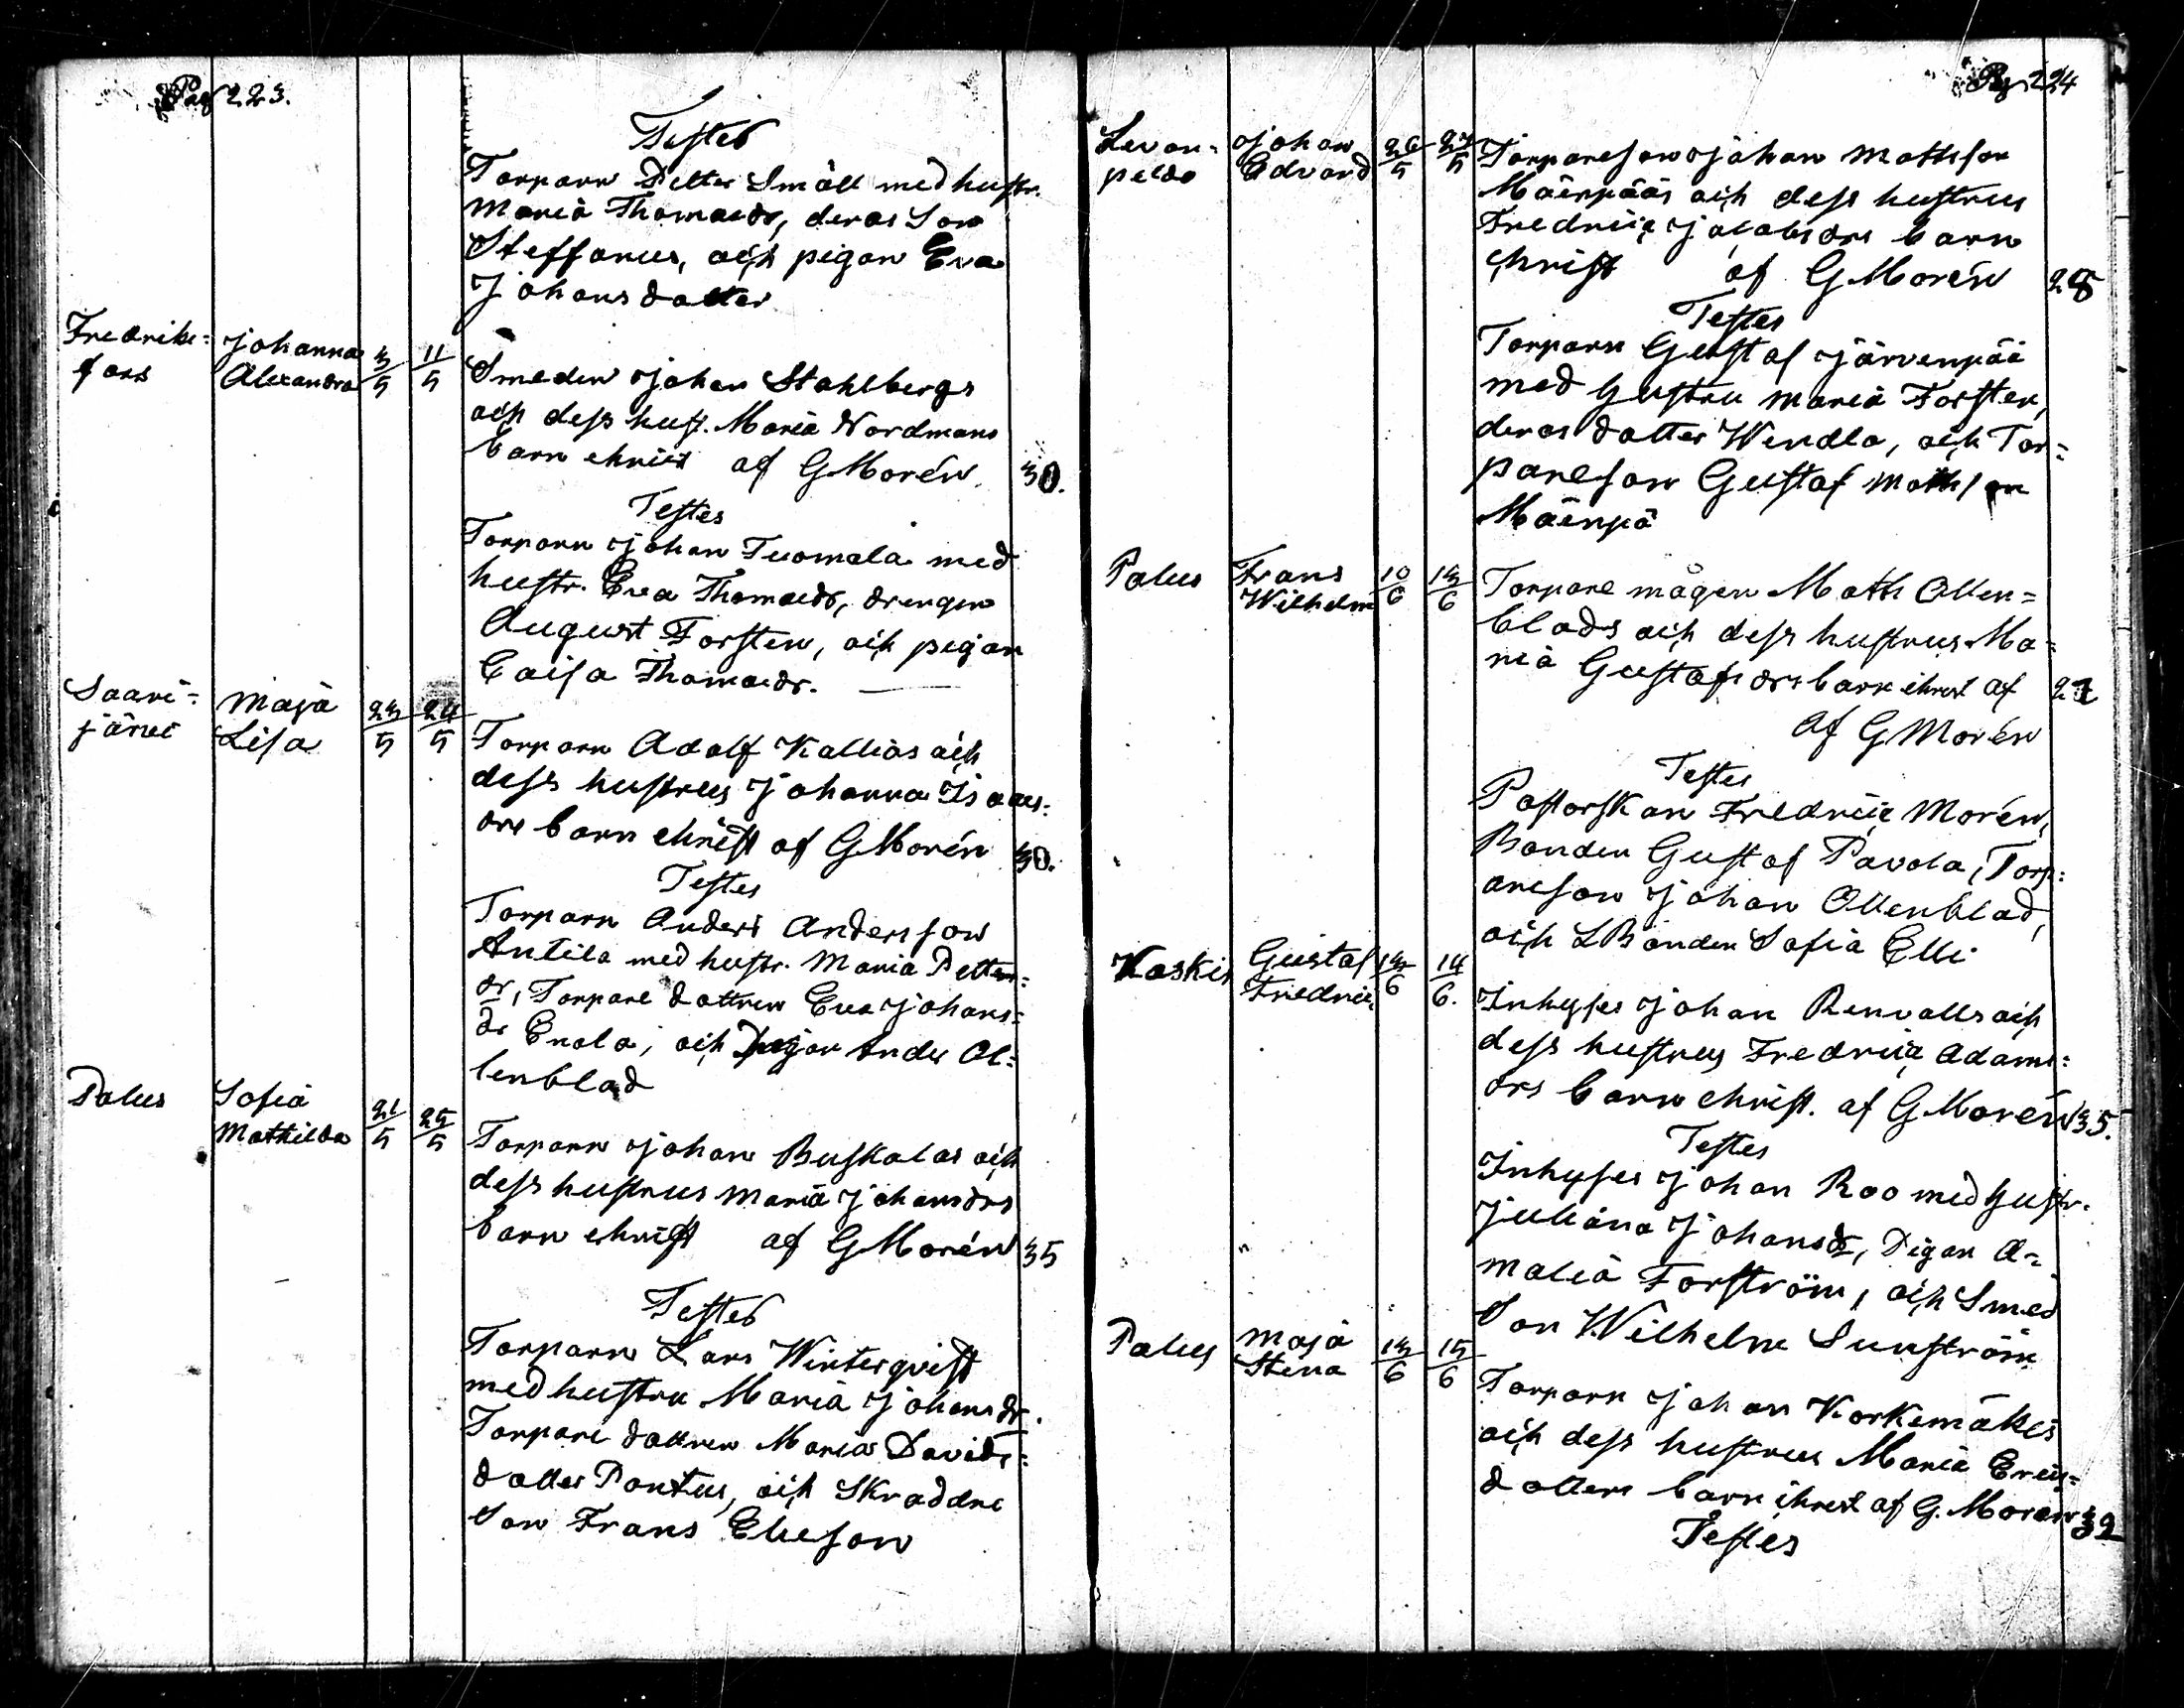 Pag 223.
Testes
Torparn Petter Småll med hustr.
Maria Thomasdr, deras Son
Steffanus, och pigan Eva
Johansdatter
Fredriks=
fors
Johanna
Alexandra
3/5
11/5
Smeden Johan Stahlbergs
och dess hust. Maria Nordmans
barn christ af G Morén.
30.
Testes
Torparn Johan Tuomala med
hustr. Eva Thomasdr, drengen
August Forsten, och pigan
Caisa Thomasdr.
Saari=
järvi
Maja
Lisa
23/5
24/5
Torparn Adolf Kallias och
dess hustrus Johanna Isaacs=
drs barn christ af G Morén
30.
Testes
Torparn Anders Andersson
Antila med hustr. Maria Petters=
dr, Torpare dottren Eva Johans=
dr Enola, och Anders Ol=
lenblad
Palus
Sofia
Mathilda
21/5
25/5
Torparn Johan Buskalas och
dess hustrus Maria Johansdrs
barn christ af G Morén
35
Testes
Torparn Lars Winterqvist
med hustru Maria Johansdr.
Torpare dottren Maria Davids=
datter Pontus, och Skraddre
Son Frans Elieson
Pag 224
Levan=
peldo
Johan
Edvard
26/5
27/5
Torpareson Johan Mattsson
Mäenpääs och dess hustrus
Fredrica Jacobsdrs barn
christ af G Morén
28
Testes
Torparn Gustaf Järvenpää
med hustru Maria Forsten,
deras datter Wendla, och Tor=
pareson Gustaf Mathson
Mäenpä
Palus
Frans
Wilhelm
10/6
13/6
Torpare mågen Math Ollen=
blads och dess hustrus Ma=
ria Gustafsdrs barn christ af
27
af G Morén
Testes
Pastorskan Fredrica Morén,
Bonden Gustaf Pavola, Torp=
areson Johan Ollenblad,
och LBonden Sofia Elli
Koskis
Gustaf
Fredric
13/6
14/6.
Inhyses Johan Renvalls och
dess hustrus Fredrica Adams=
drs barn christ. af G Morén
35.
Testes
Inhyses Johan Roo med hustr.
Juliana Johansdr, Pigan A=
malia Forström, och Smed
Son Wilhelm Sunström
Palus
Maja
Stina
13/6
15/6
Torparn Johan Korkemäkis
och dess hustrus Maria Erics=
datters barn christ af G. Morén
32
Testes